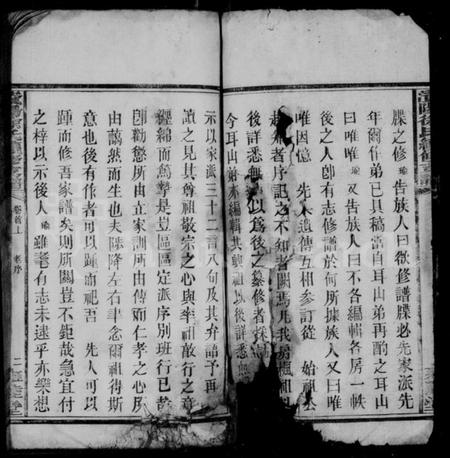 牒之修 瑜告族人曰欲修譜牒必先家派先
年爾作弟已具稿當自耳山弟再酌之耳山
曰唯唯 瑜又告族人曰不各編輯各房一帙
後之人卽有志修譜於何所據族人又曰唯
唯因憶 先 未遺傳互相參訂從 始祖
起 者序記之不知者闕焉凡我房 祖
後詳悉無 以爲後之纂修者採
今耳山弟亦編輯其 祖以後詳
示以家派三十二言八句及其弁譜予再
讀之見其尊祖敬宗之心與率祖敢行之意
纏綿而篤摯是豈區區定派序別班行已哉
卽勸懲所由立家訓所由傳而仁孝之心所
由藹然而生也夫陟降左右聿念爾祖得斯
意也後有作者可以踵而祀吾 先人可以
踵而修吾家譜矣則所關豈不鉅哉急宜付
之梓以示後人 瑜雖耄有志未逮乎亦樂想
卷首上 老序 二